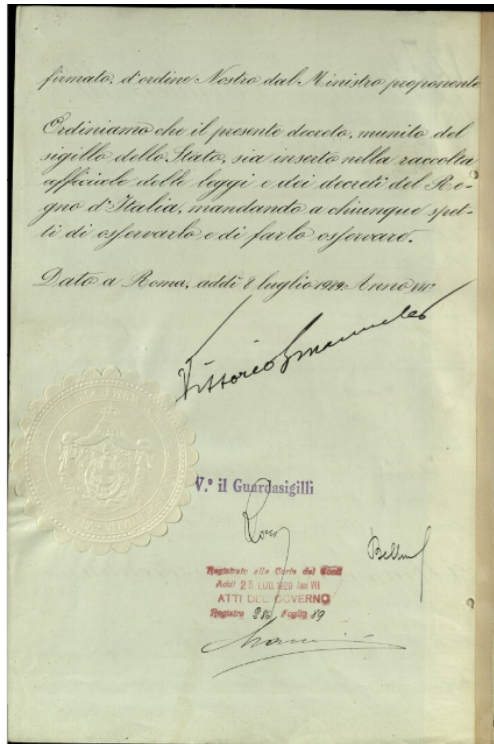 firmato, d'ordine Nostro dal Ministro proponente
Ordiniamo che il presente decreto, munito del
sigillo dello Stato, sia inserto nella raccolta
officiale delle leggi e dei decreti del Re-
gno d'Italia, mandando a chiunque spet-
ti di osservarlo e di farlo osservare.
Dato a Roma, addì 8 luglio 1929 Anno VII°
Vittorio Emanuele
V.° il Guardasigilli
Rocco
Registrato alla Corte dei Conti
Addì 25 LUG. 1929 Anno VII
ATTI DEL GOVERNO
Registro 286 Foglio 89